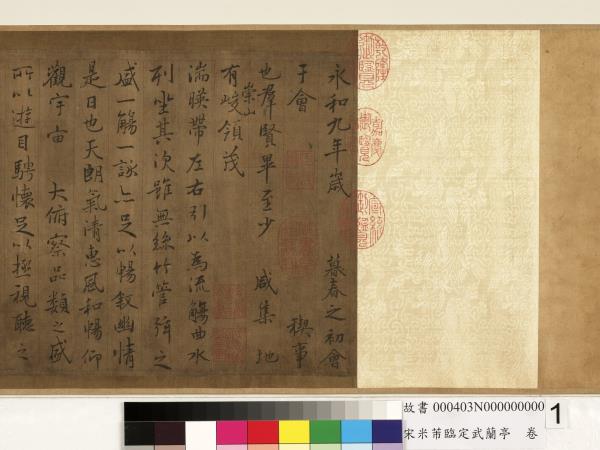 永和九年歲 暮春之初會
于會、 禊事
也羣賢畢至少 咸集地
有崇山峻領茂
湍暎帶左右引以為流觴曲水
列坐其次雖無絲竹管弦之
盛一觴一詠亦足以暢敘幽情
是日也天朗氣清惠風和暢仰
觀宇宙 大俯察品類之盛
所以遊目騁懷足以極視聽之
故書 000403N000000000
宋米芾臨定武蘭亭 卷
1